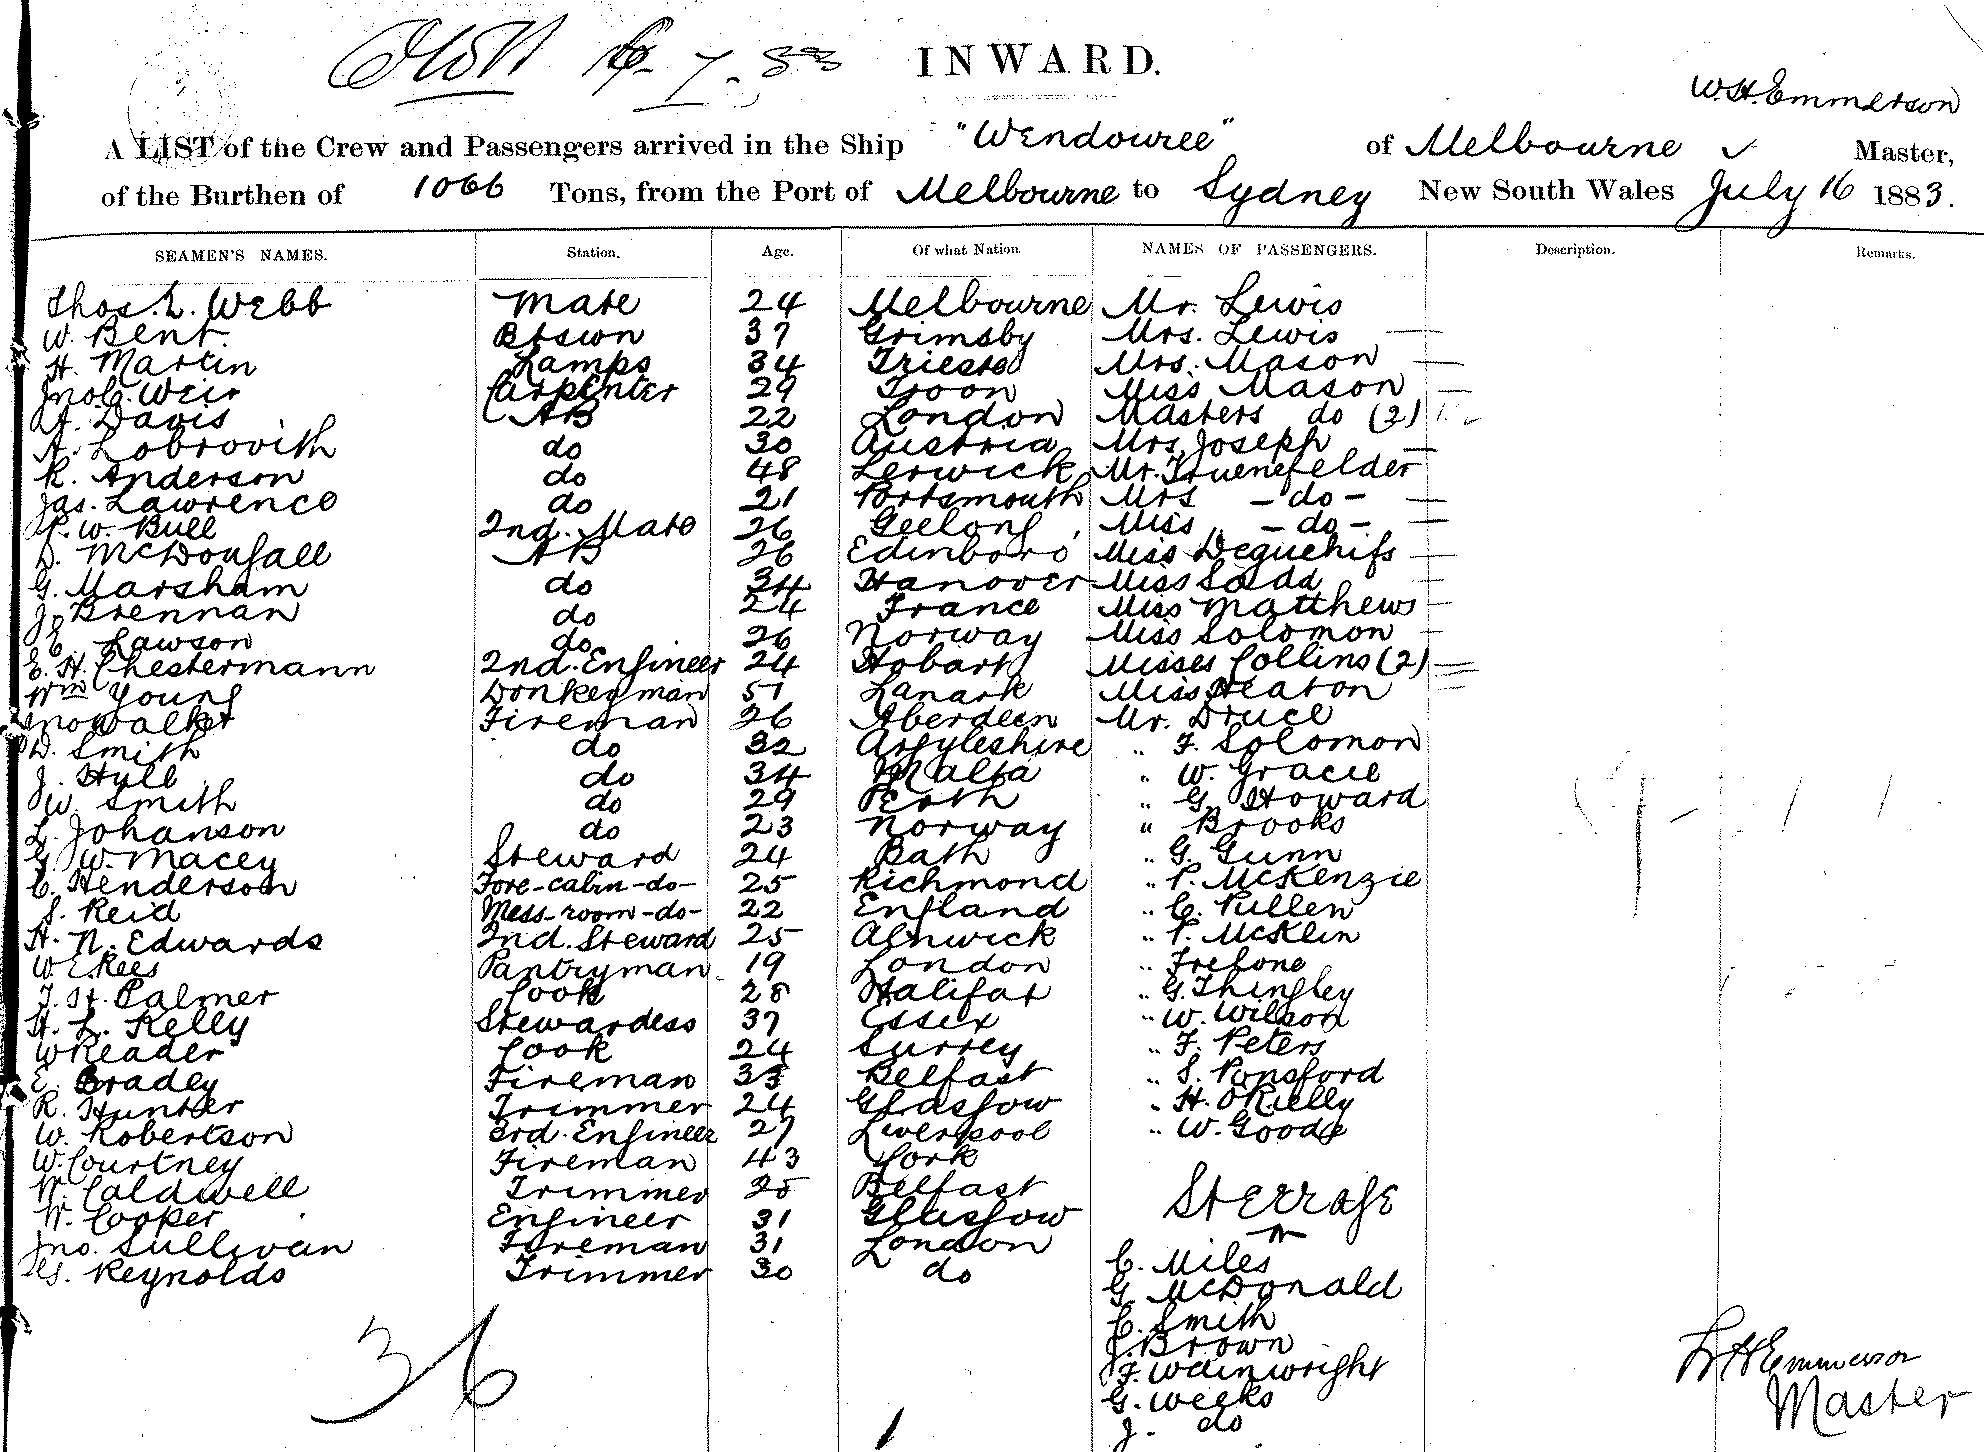 7.83 INWARD.
W. H. Emmerson
A LIST of the Crew and Passengers arrived in the Ship "Wendouree" of Melbourne Master,
of the Burthen of 1066 Tons, from the Port of Melbourne to Sydney New South Wales July 16 1883.
SEAMEN'S NAMES. Station. Age. Of what Nation. NAMES OF PASSENGERS. Description. Remarks.
Thos. L. Webb Mate 24 Melbourne Mr. Lewis
W. Bent. Btswn 37 Grimsby Mrs. Lewis
H. Martin Lamps 34 Trieste Mrs. Mason
Jno. Weir Carpenter 29 Troon Miss Mason
A. Davis AB 22 London Masters do (2)
A. Lobrovith do 30 Austria Mrs Joseph
R. Anderson do 48 Lerwick Mr. Truenefelder
Jas. Lawrence do 21 Portsmouth Mrs - do -
P. W. Bull 2nd. Mate 26 Geelong Miss - do -
D. McDougall AB 26 Edinboro Miss
G. Marsham do 34 Hanover Miss Ladd
J. Brennan do 24 France Miss Matthews
E. Lawson do 26 Norway Miss Solomon
E. H. Chestermann 2nd. Engineer 24 Hobart Misses Collins (2)
Wm Young Donkeyman 51 Lanark Miss Heaton
Jno Walker Fireman 26 Aberdeen Mr. Druce
D. Smith do 32 Argyleshire " F. Solomon
J. Hull do 34 Malta " W. Gracie
W. Smith do 29 Perth " G. Howard
L. Johanson do 23 Norway " Brooks
G. W. Macey Steward 24 Bath " G. Gunn
C. Henderson Fore-cabin -do- 25 Richmond " P. McKenzie
S. Reid Mess-room -do- 22 England " C. Pullen
H. N. Edwards 2nd. Steward 25 Alnwick " P. McKlin
W E Rees Pantryman 19 London " Frelone
T. H. Palmer Cook 28 Halifax " G. Thingley
H. L. Kelly Stewardess 37 Essex " W. Wilson
W Reader Cook 24 Surrey " F. Peters
E. Bradey Fireman 33 Belfast " S. Ponsford
R. Hunter Trimmer 24 Glasgow " H. O'Rielly
W. Robertson 3rd. Engineer 27 Liverpool " W. Goode
W. Courtney Fireman 43 Cork
W. Caldwell Trimmer 25 Belfast Steerage
W. Cooper Engineer 31 Glasgow
Jno. Sullivan Foreman 31 London C. Miles
Gs. Reynolds Trimmer 30 do G. McDonald
C. Smith
J. Brown
F. Wainwright
G. Weeks
J. do
36
W H Emmerson
Master